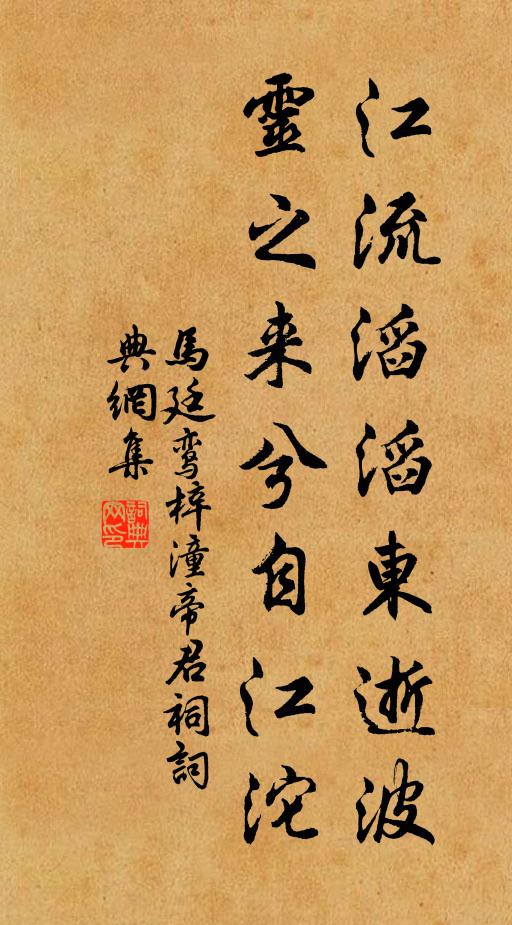 江流滔滔東逝波
靈之来兮自江沱
馬廷鸾梓潼帝君祠詞
典網集
詞典
网印